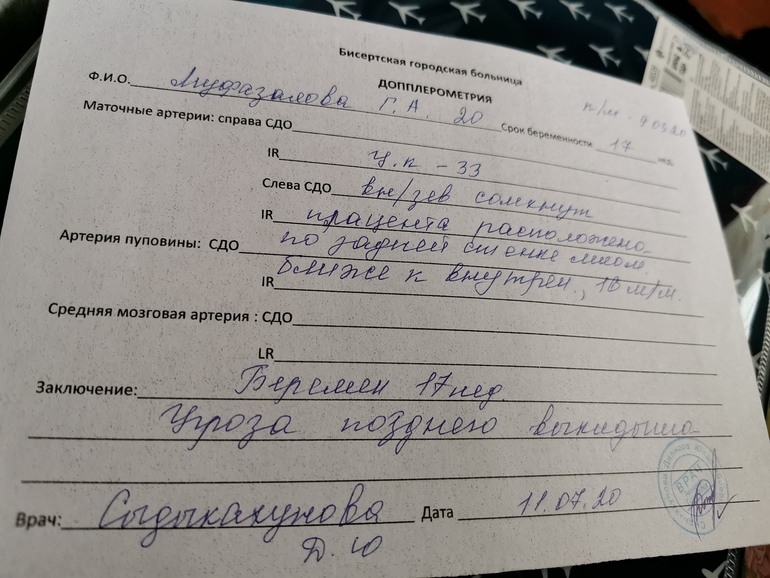 Бисертская городская больница
ДОППЛЕРОМЕТРИЯ
п/м - 9.03.20
Ф.И.О. Муфазалова Г. А. 20 Срок беременности 17 нед.
Маточные артерии: справа СДО
IR ц.к - 33
Слева СДО вн/зев сомкнут
IR працента расположено
Артерия пуповины: СДО по задней стенке
IR ближе к внутрен., 16 м/м.
Средняя мозговая артерия : СДО
LR
Заключение: Беремен 17 нед.
Угроза позднего выкидыша
Врач: Сыдыкахунова Дата 11.07.20
Д. Ю
ВРАЧ